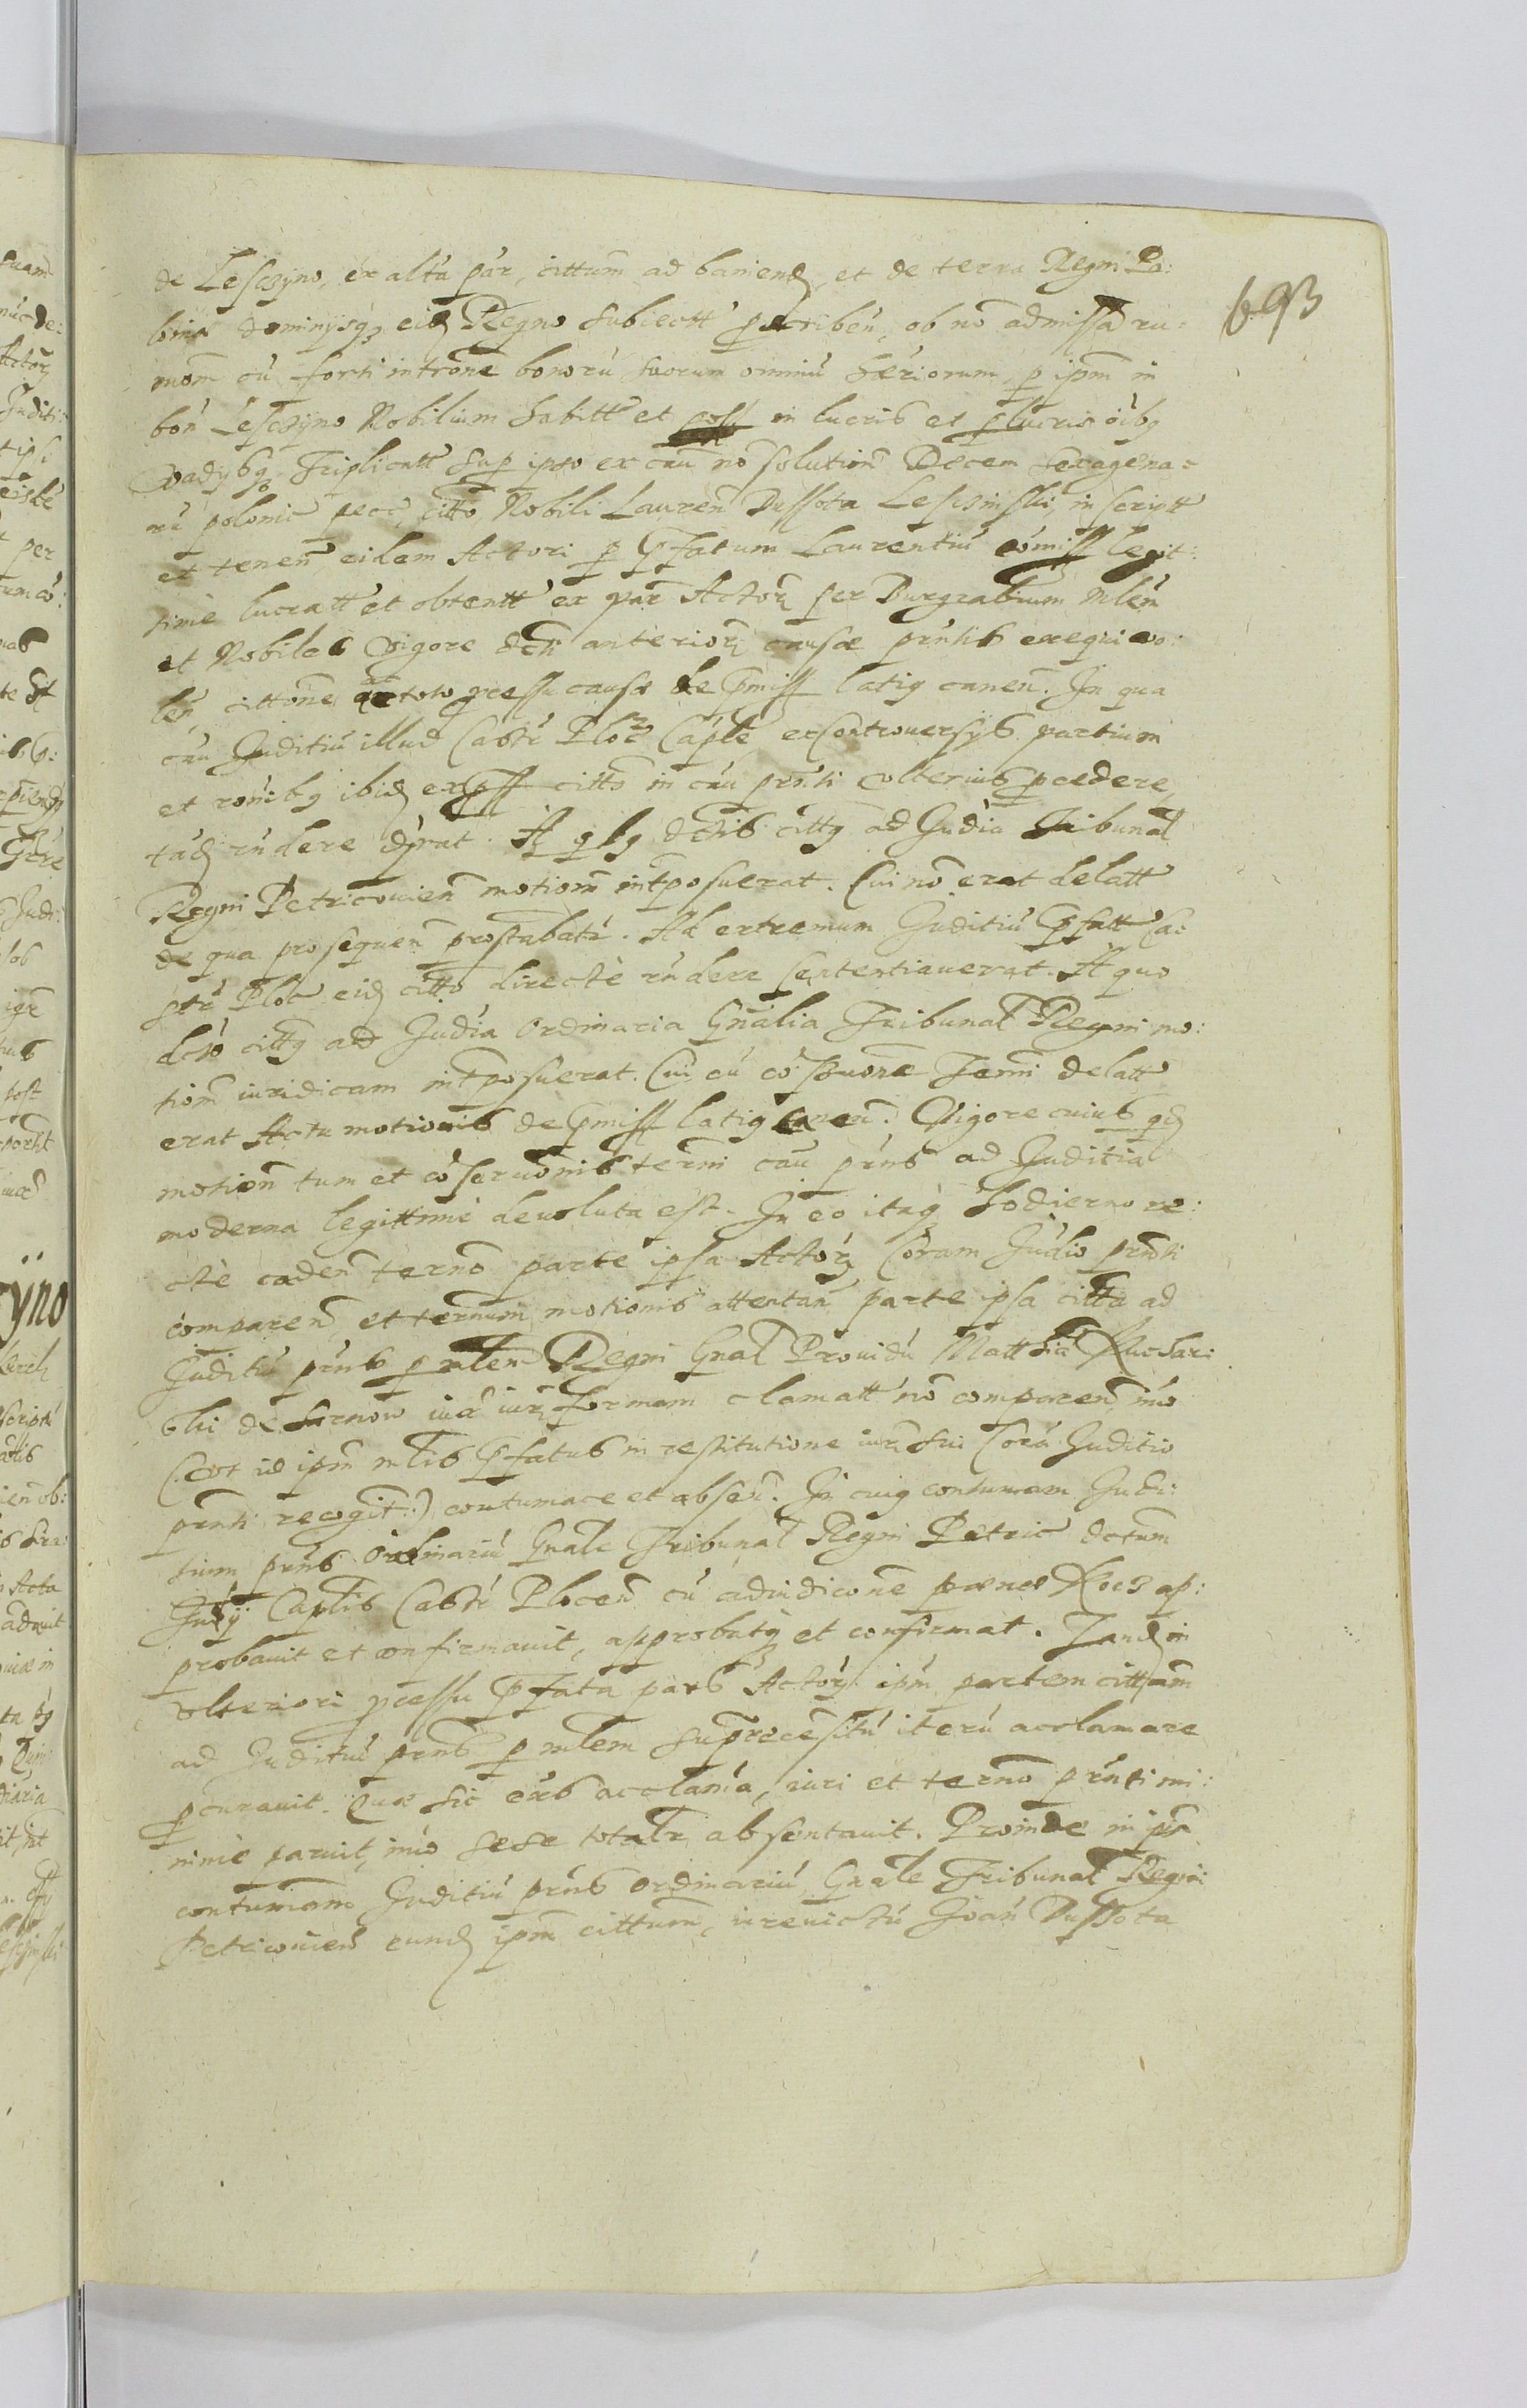 693
de Lesczyno, ex alťa pár, cittum ad baniend, et de terra Regni Po:
loniæ dominijsq eid Regno subiectt pscriben, ob nó admissá ru:
mōm cū forti intronē bonorū suorum omniū hæriorum p ipm in
bon Lesczyno Nobilium habitt et poss in lucris et plucris oibq
Vadybq Triplicatt sup ipso ex cau nō solutiōn Decem sexagena:
rū polonic pecc, citto, Nobili Lauren Dussota Lescsinski, inscriptt
et tenen eidem Actori p pfatum Laurentiū comiss legit:
time lucratt et obtentt ex par Actor per Burgrabium mlem
et Nobiles vigore dcti anterior causæ prntis exequi vo:
len cittone ac toto pcessu causæ de pmiss latiq canen. In qua
cau Juditiū illud Castr Ploc Caple ex controversijs partium
et ronibq ibid exposs citto in cau prnti ulterius pcedere,
tad rndere djrat. A qbq dctis cittq ad Judia Tribunal
Regni Petricovien motionm intposuerat. Cui nō erat delatt
de qua prosequen prostabatr. Ad extremum Juditiū pfatt Ca:
str Ploc eid citto directè rndere sententiauerat. A quo
dcto cittq ad Judia Ordinaria Gnalia Tribunal Regni mo:
tionm iuridicam intposuerat. Cui cū coservone Termi delatt
erat Actu motionis de pmiss latiq canen. Vigore cuius qd
motion tum et coservonis termi cau prns ad Juditia
moderna legittimè devoluta est. In eo itaq hodierno re:
ctè caden terno parte ipsa Actor Coram Judio prnti
comparen, et ternum motionis attentan parte ipsa citta ad
Juditiū prns p mlem Regni Gnal Providū Matthia Kuchar:
ski de iuxa iur formam clamatt nō comparen, imo
(:ut id ipm mlis pfatus in restitutione iur sui Corā Juditio
prnti recogit:) contumace et absen. In cuiq contumam Judi:
tium prns Ordinariū Gnale Tribunal Regni Petric dctum
Judij Captlis Castr Plocen cū adiudicone pænæ Kocz ap:
probavit et confirmavit, approbatq et confirmat. Tand in
ulteriori pcessu pfata pars Actor ipm partem cittam
ad Juditiū prns p mlem suprecensitū iterū acclamare
pcuravit. Quæ sic exns acclama, iuri et terno prnti mi:
nime paruit, imo sese totalr absentavit. Proinde in ipa
contumam Juditiū prns Ordinariū Gnale Tribunal Regni
Petricovien eund ipm cittum, irevictū Joan Dussota